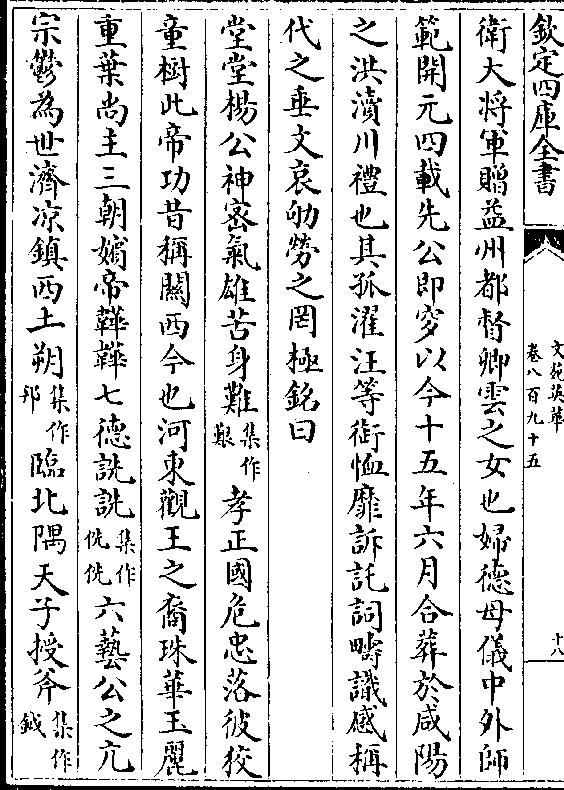 欽定四庫全書
文苑英華
卷八百九十五
十八
衛大将軍贈益州都督卿雲之女也婦德母儀中外師
範開元四載先公即穸以今十五年六月合葬於咸陽
之洪瀆川禮也其孤濯汪等銜恤靡訴託詞疇識感稱
代之垂文哀劬勞之罔極銘曰
堂堂楊公神宻氣雄苦身難集作艱孝正國危忠落彼狡
童樹此帝功昔稱關西今也河東觀王之裔珠華玉麗
重葉尚主三朝嬪帝韡韡七德詵詵集作侁侁六藝公之亢
宗鬱為世濟凉鎮西土朔集作邦臨北隅天子授斧集作鉞